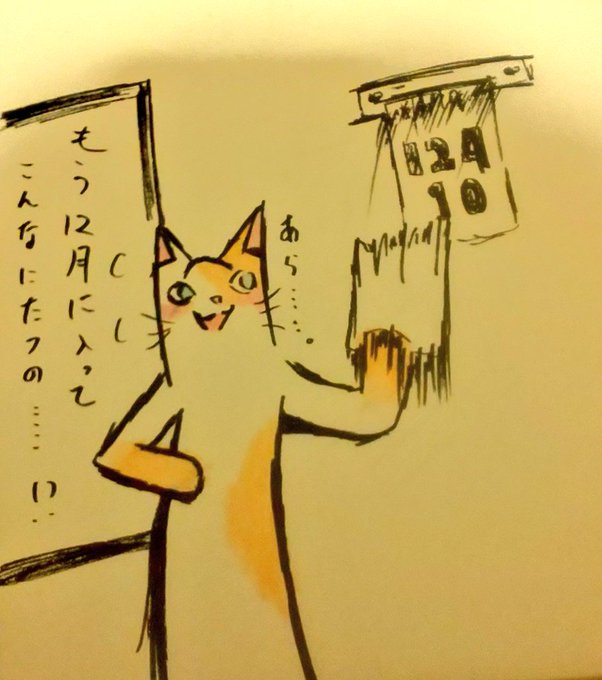 12月
10
あら……。
もう12月に入って
こんなにたつの……!?